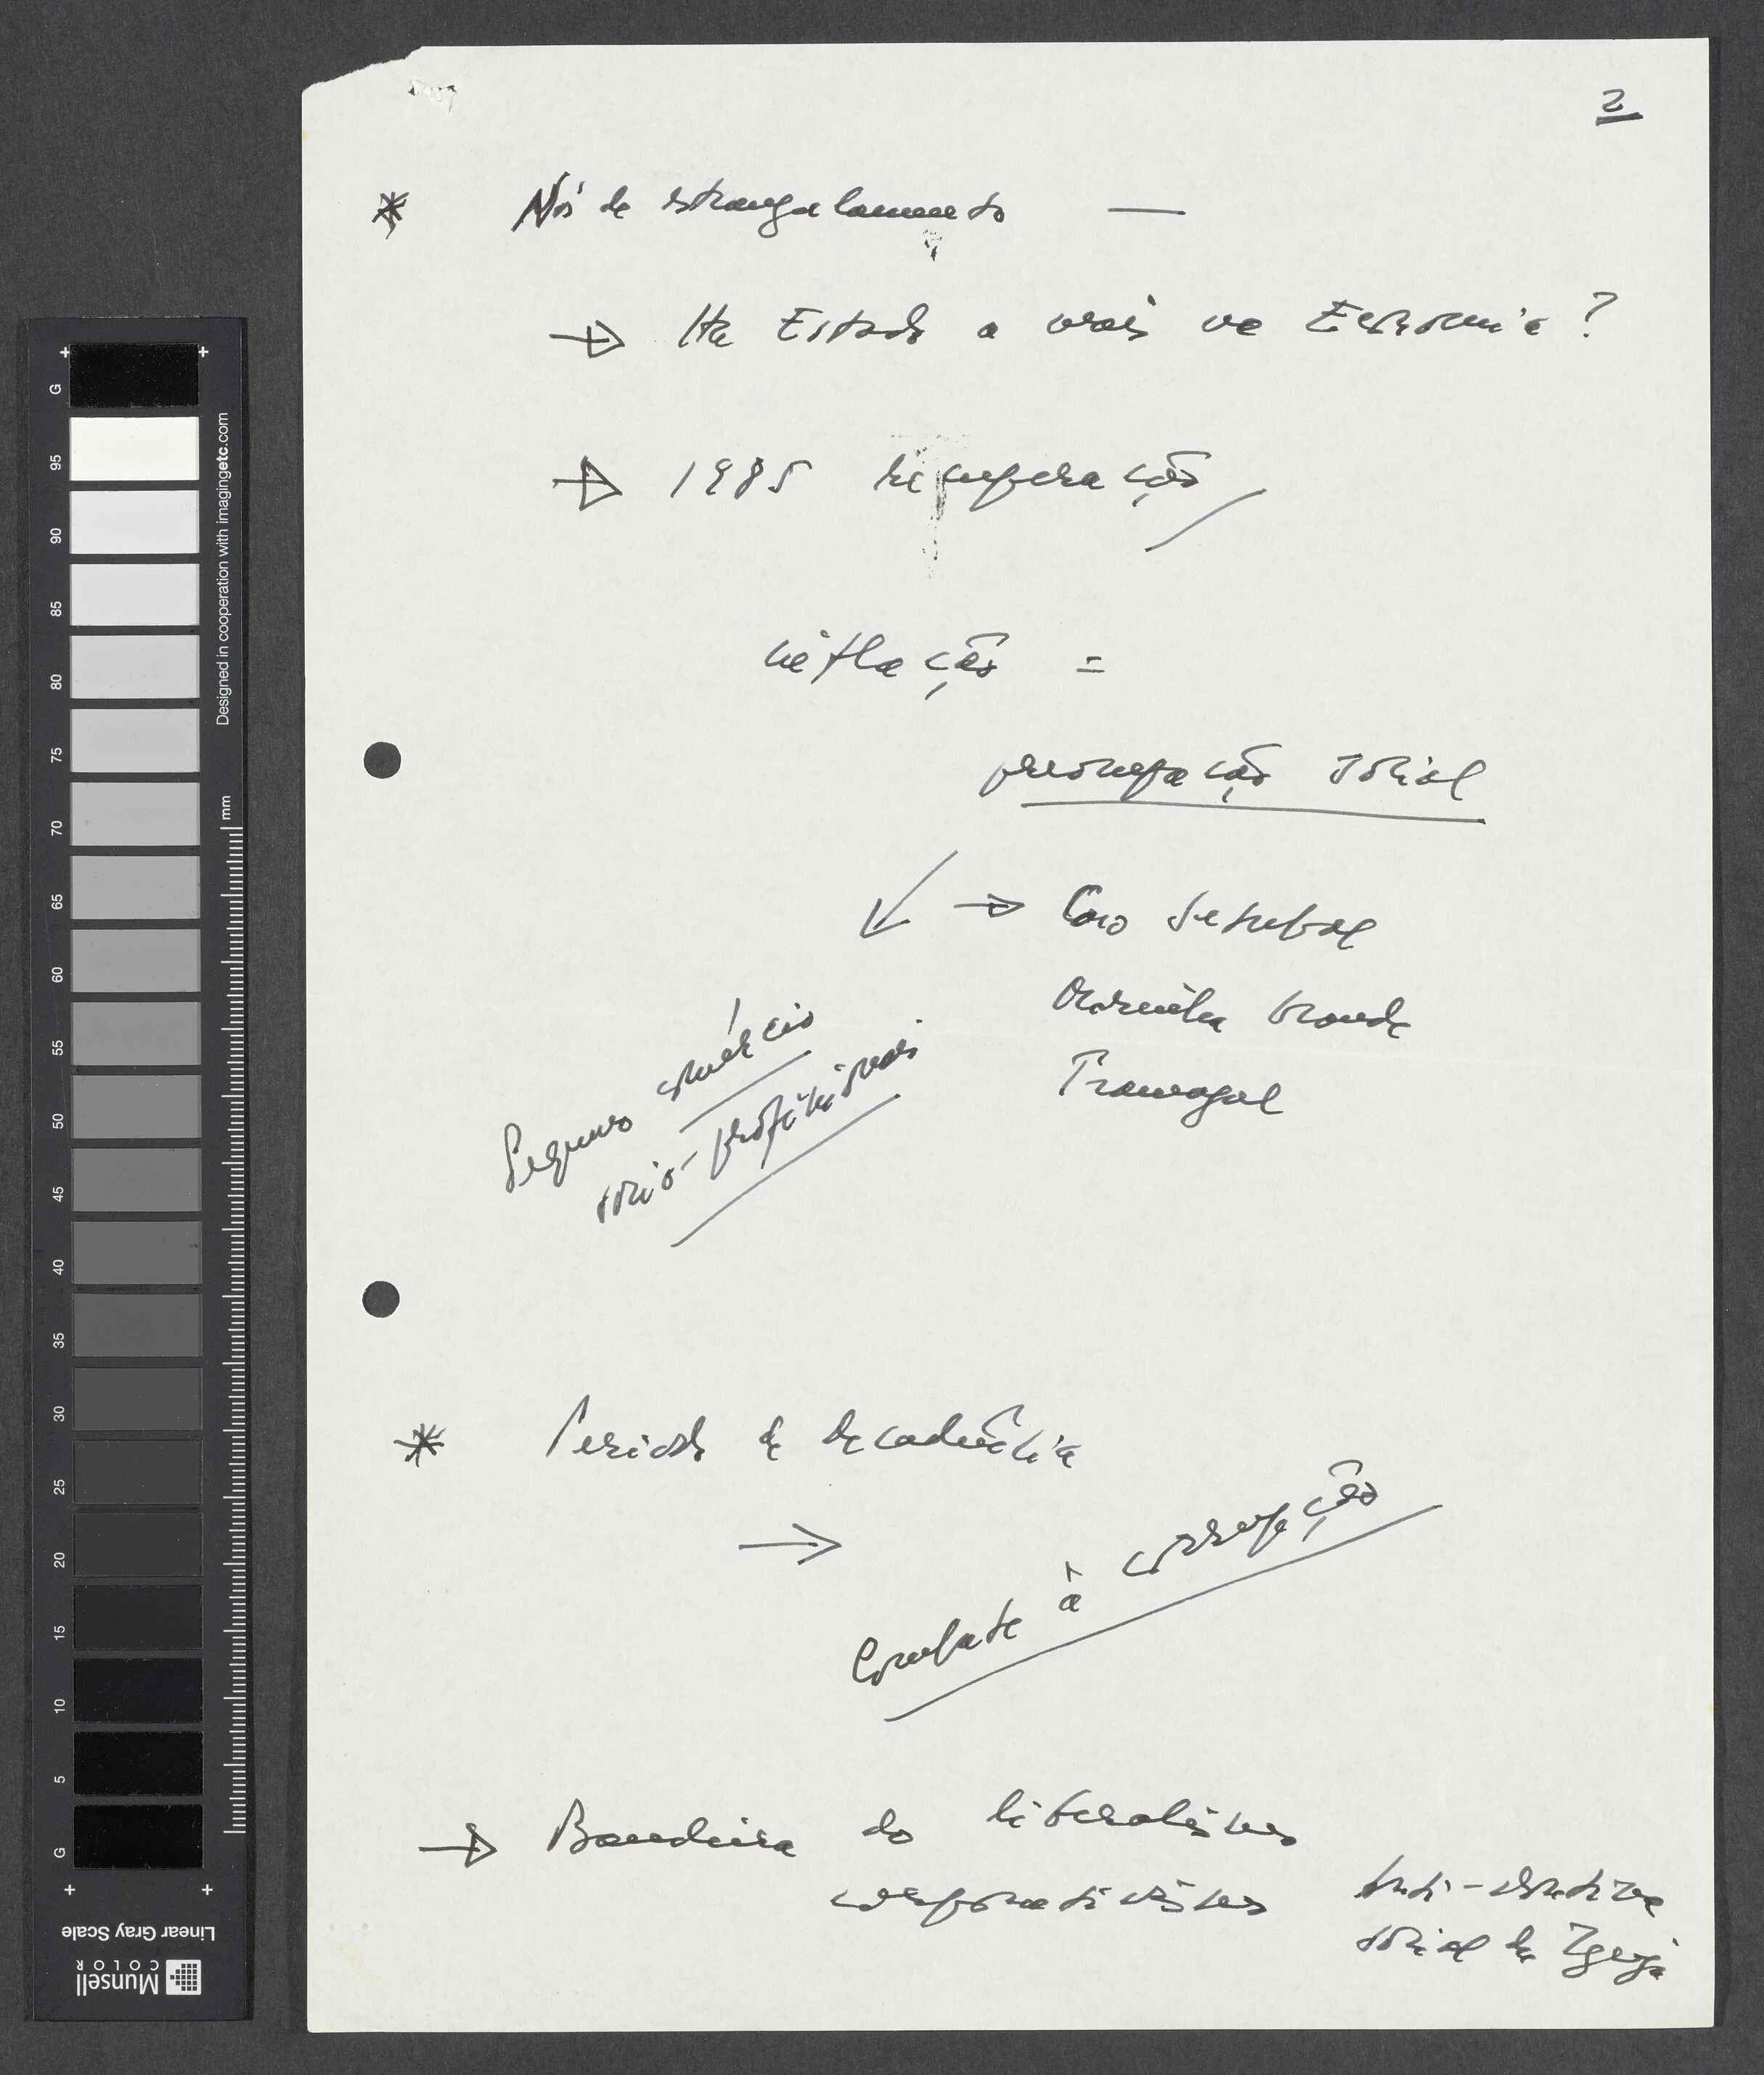 2
* Nós de estrangulamento —
→ Há Estado a mais na Economia ?
→ 1985 recuperação
inflação =
preocupação social
→ Caso Setúbal
Marinha Grande
Tramagal
Pequeno comércio
sócio-profissionais
* Período de decadência
→
Combate à corrupção
→ Bandeira do liberalismo
corporativismo
Anti-doutrina
social da Igreja
G
95
90
85
80
75
70
65
60
55
50
45
40
35
30
25
20
15
10
5
G
Designed in cooperation with imagingetc.com
mm
Linear Gray Scale
Munsell
COLOR